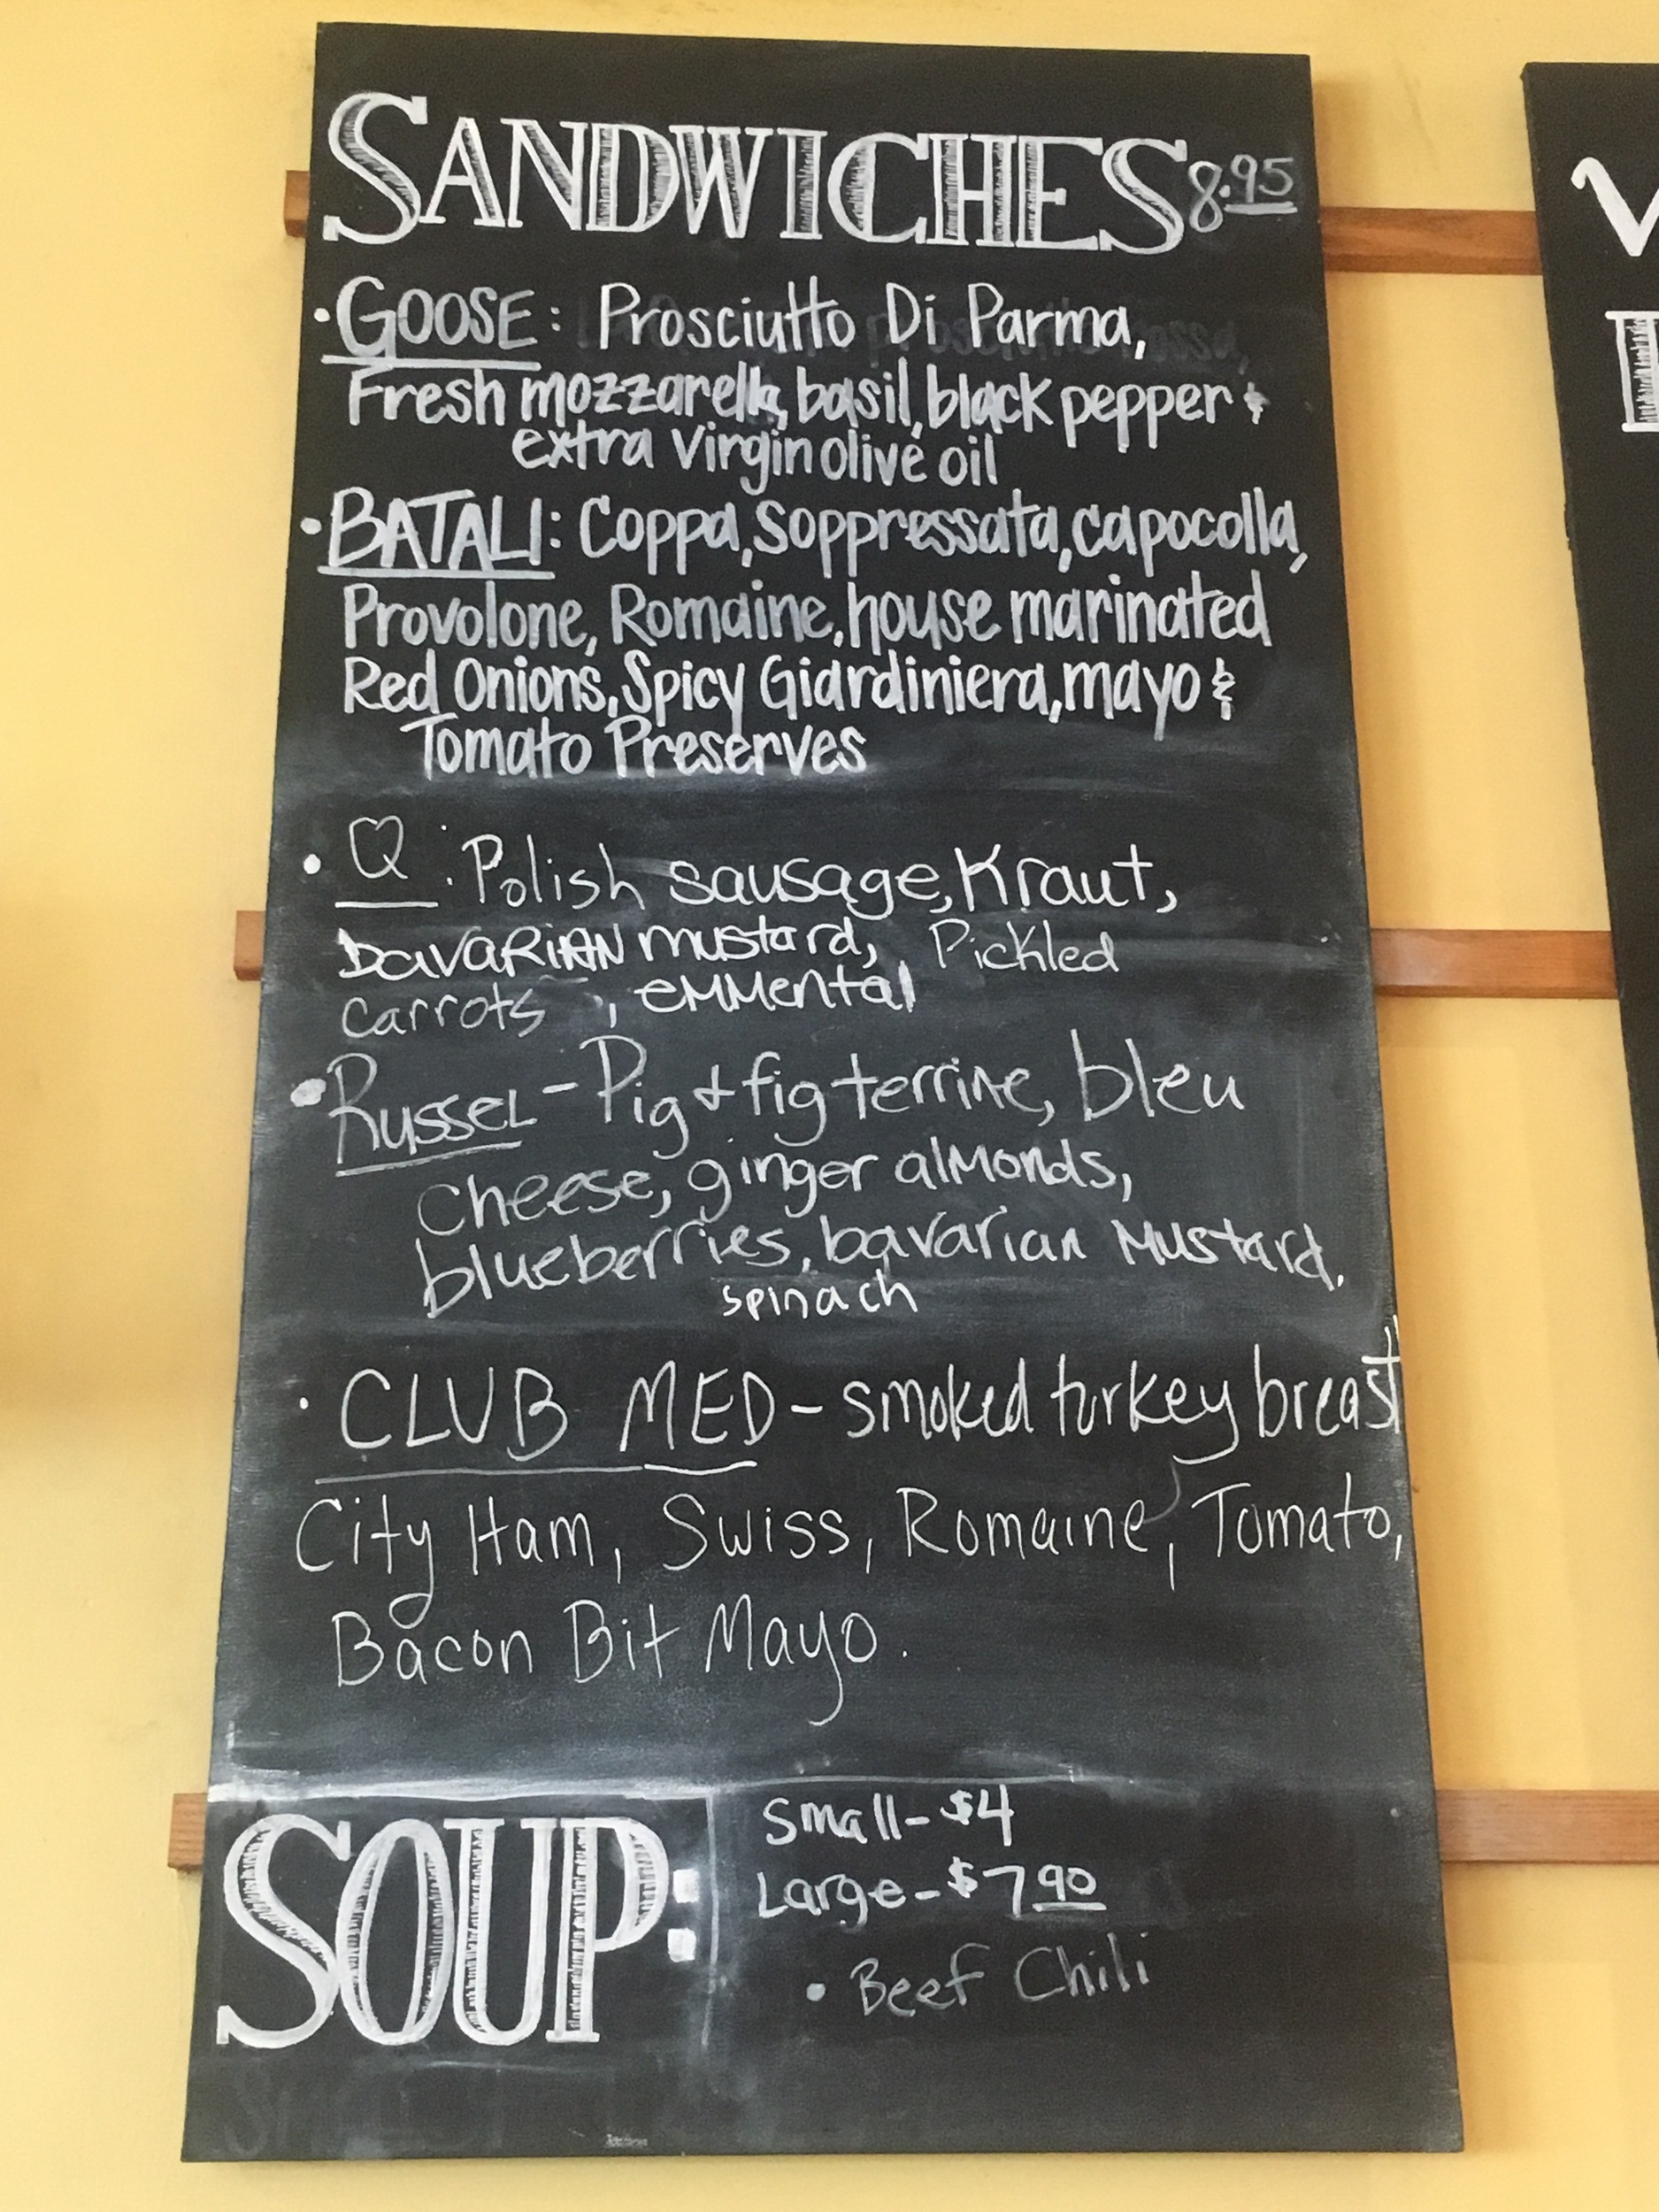 SANDWICHES 8.95
• GOOSE: Prosciutto Di Parma,
Fresh mozzarella, basil, black pepper &
extra virgin olive oil
• BATALI: Coppa, Soppressata, capocolla,
Provolone, Romaine, house marinated
Red Onions, Spicy Giardiniera, mayo &
Tomato Preserves
• Q: Polish sausage, Kraut,
bavaRiAN mustard, Pickled
carrots, emmental
• Russel - Pig & fig terrine, bleu
cheese, ginger almonds,
blueberries, bavarian Mustard,
spinach
• CLUB MED - smoked turkey breast
City Ham, Swiss, Romaine, Tomato,
Bacon Bit Mayo.
SOUP:
Small - $4
Large - $7 90
• Beef Chili